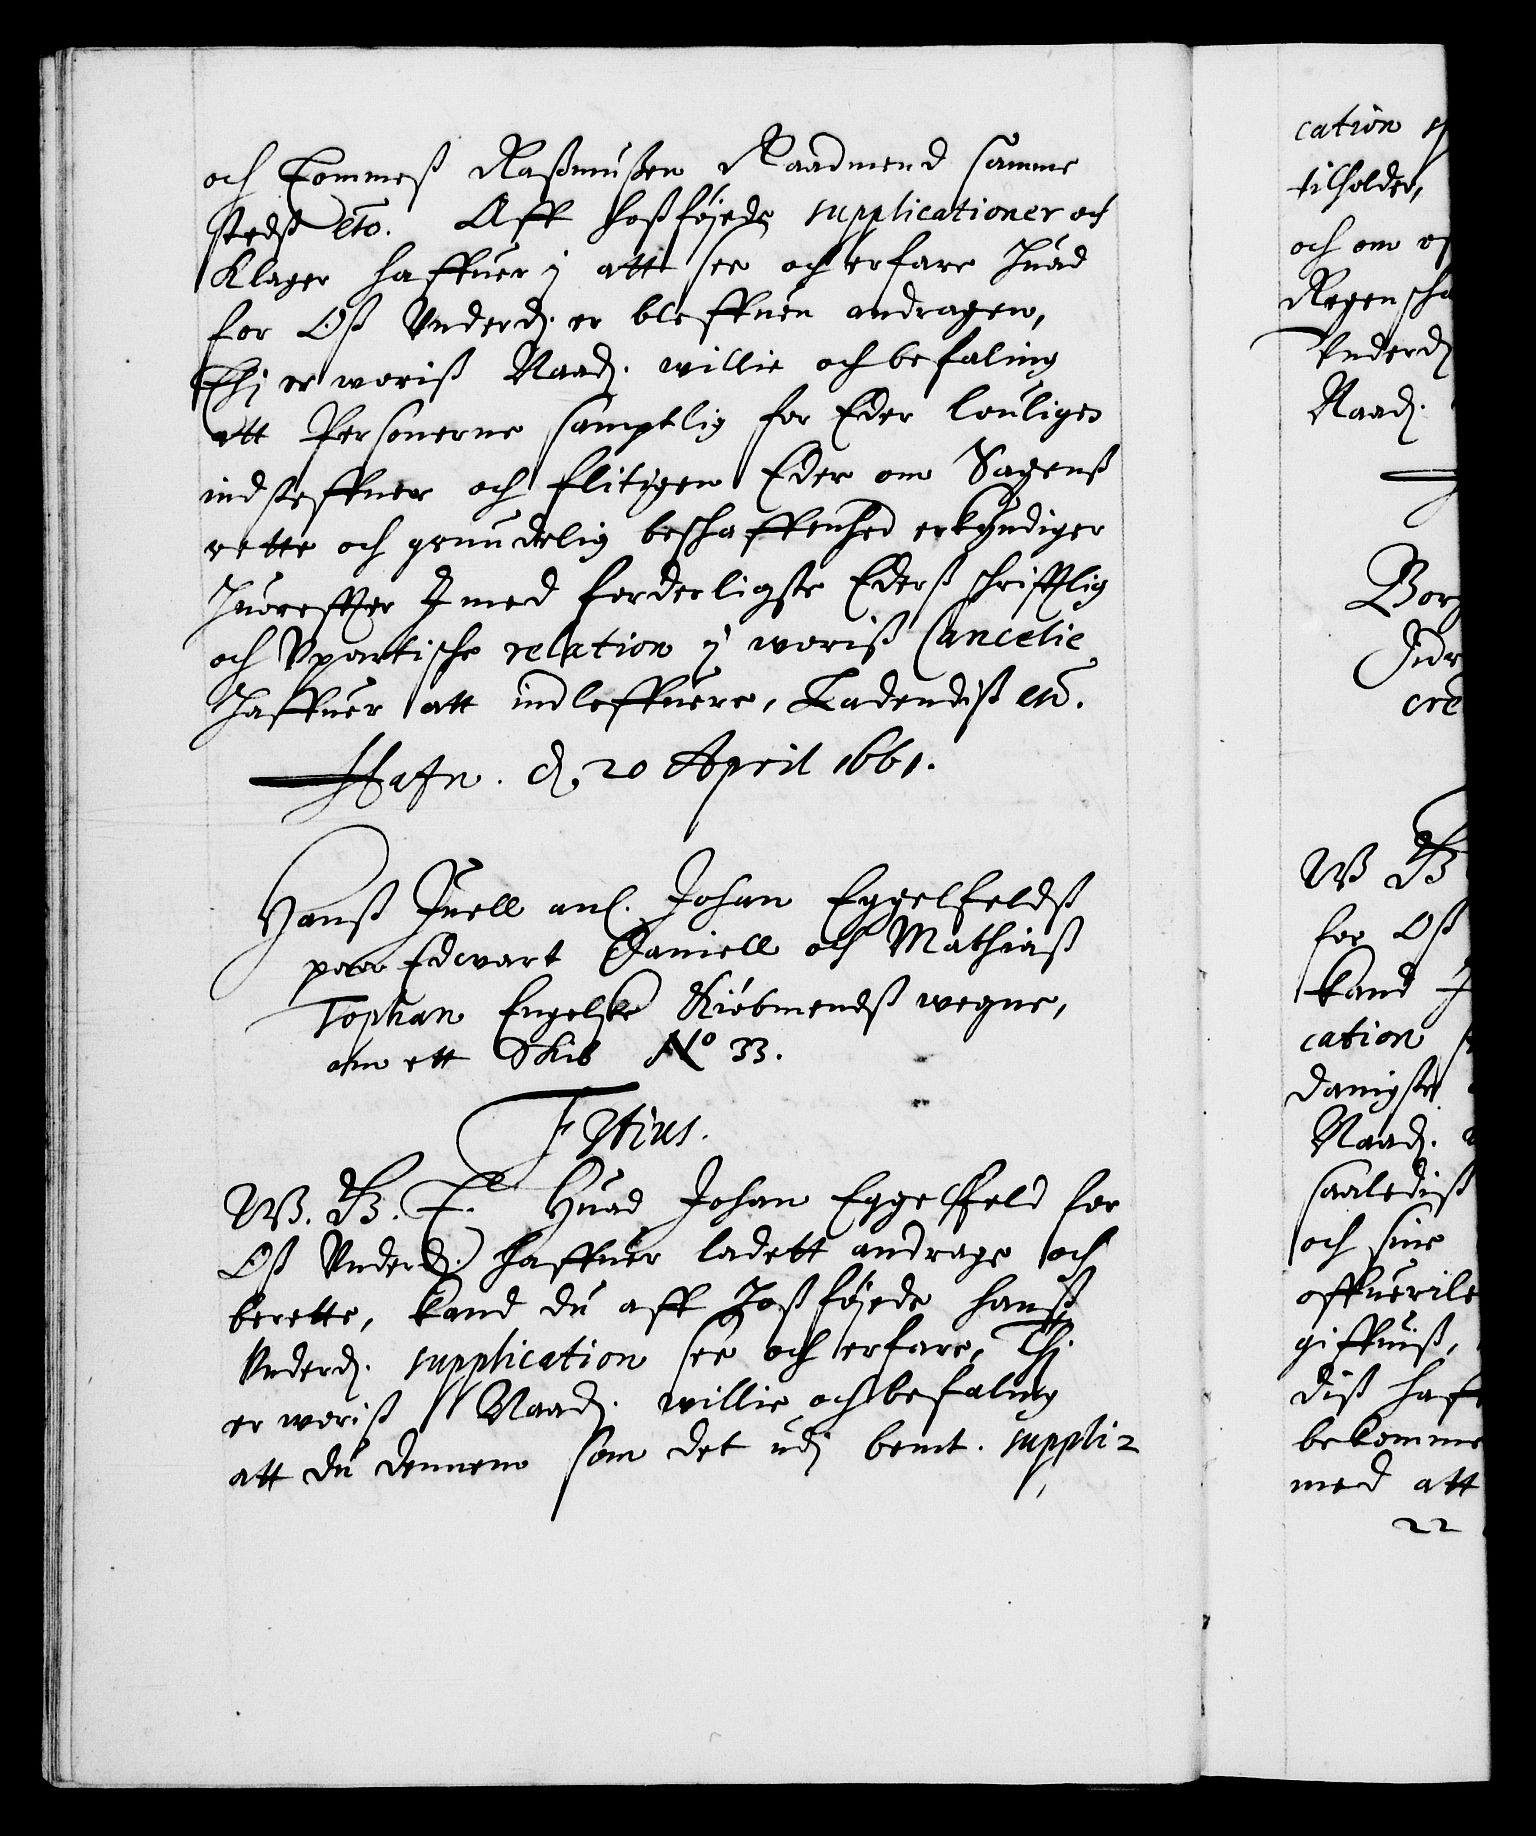 och Tommeß Raßmußen Raadmend samme
stedß etc. Aff hoßföjede supplicationer och
Klager haffuer i att see och erfare huad
for Oß Underd. er bleffuen andragen,
Thj er woriß Naad. willie och befaling
att Personerne samptlig for Eder louligen
indsteffner och flitigen Eder om Sagenß
rette och grundelig beschaffenhed erkyndiger
huoreffter I med forderligste Ederß schrifftlig
och Upartische relation i woriß Cancelie
haffuer att indleffuere, Ladendiß etc.
Hafn. d. 20 April 1661.
Hanß Juell anl. Johan Eggelfeldß
paa Edwart Daniell och Mathiaß
Tophan Engelske Kiöbmendß wegne,
om ett Skib No 33.
F 3tius.
W. G. T. Huad Johan Eggelffeld for
Oß Underd. haffuer ladett andrage och
berette, kand du aff hoßföjede hanß
Underd. supplication see och erfare, Thj
er woriß Naad. willie och befaling
att du dennem som det udj bemt. suppli-
cation
tilholder,
och om
Regensch
Underd
Naad.
W G
for Oß
kand
cation
danigste
Naad.
saalediß
och sine
offuerile
giffuiß,
diß haff
bekomme
med att
22